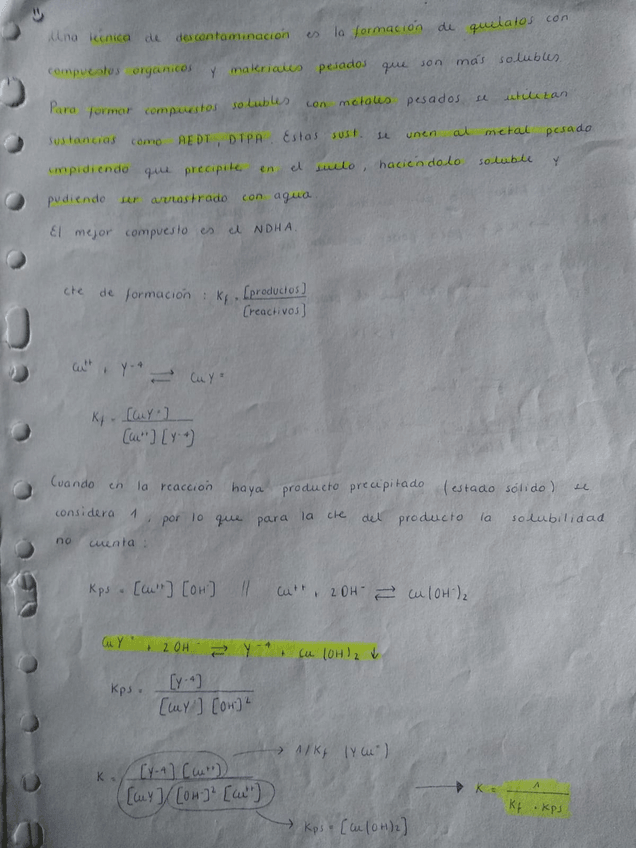 Una técnica de descontaminación es la formación de quelatos con
compuestos orgánicos y materiales pesados que son más solubles.
Para formar compuestos solubles con metales pesados se utilizan
sustancias como AEDT, DTPA. Estas sust. se unen al metal pesado
impidiendo que precipite en el suelo, haciéndolo soluble y
pudiendo ser arrastrado con agua.
El mejor compuesto es el NDHA.
cte de formación : Kf = [productos] / [reactivos]
Cu⁺⁺ + Y⁻⁴ ⇌ CuY⁼
Kf = [CuY⁼] / [Cu⁺⁺] [Y⁻⁴]
Cuando en la reacción haya producto precipitado (estado sólido) se
considera 1, por lo que para la cte del producto la solubilidad
no cuenta:
Kps = [Cu⁺⁺] [OH⁻] // Cu⁺⁺ + 2OH⁻ ⇌ Cu(OH⁻)₂
CuY⁼ + 2OH⁻ ⇌ Y⁻⁴ + Cu(OH)₂ ↓
Kps = [Y⁻⁴] / [CuY⁼] [OH⁻]²
→ 1/Kf (YCu⁼)
K = [Y⁻⁴] [Cu⁺⁺] / [CuY] [OH⁻]² [Cu⁺⁺] → K = 1 / Kf · Kps
→ Kps = [Cu(OH)₂]